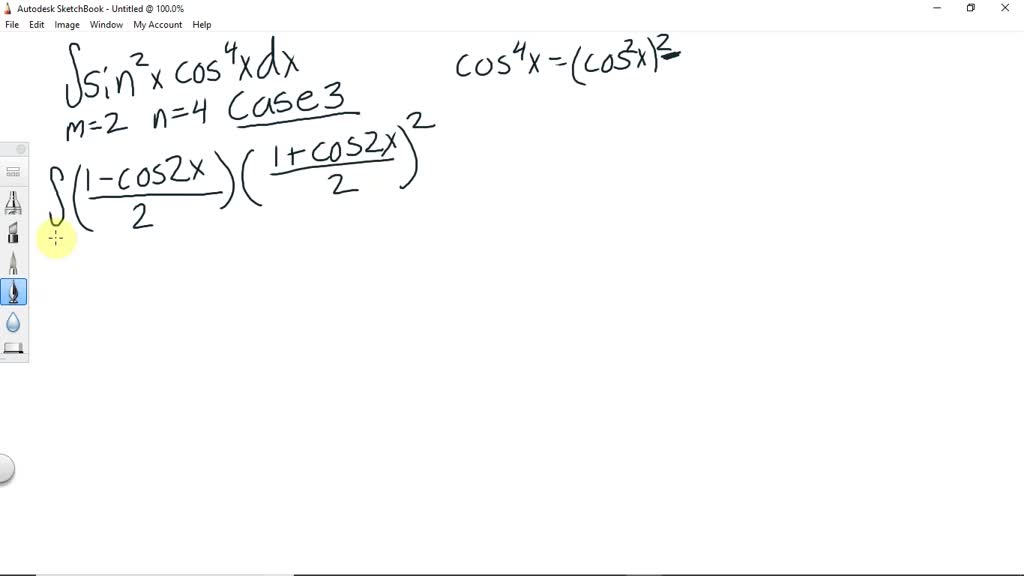 Autodesk SketchBook - Untitled @ 100.0%
File Edit Image Window My Account Help
∫sin²x cos⁴x dx
cos⁴x=(cos²x)²
m=2 n=4 Case 3
∫((1-cos2x)/2)((1+cos2x)/2)²